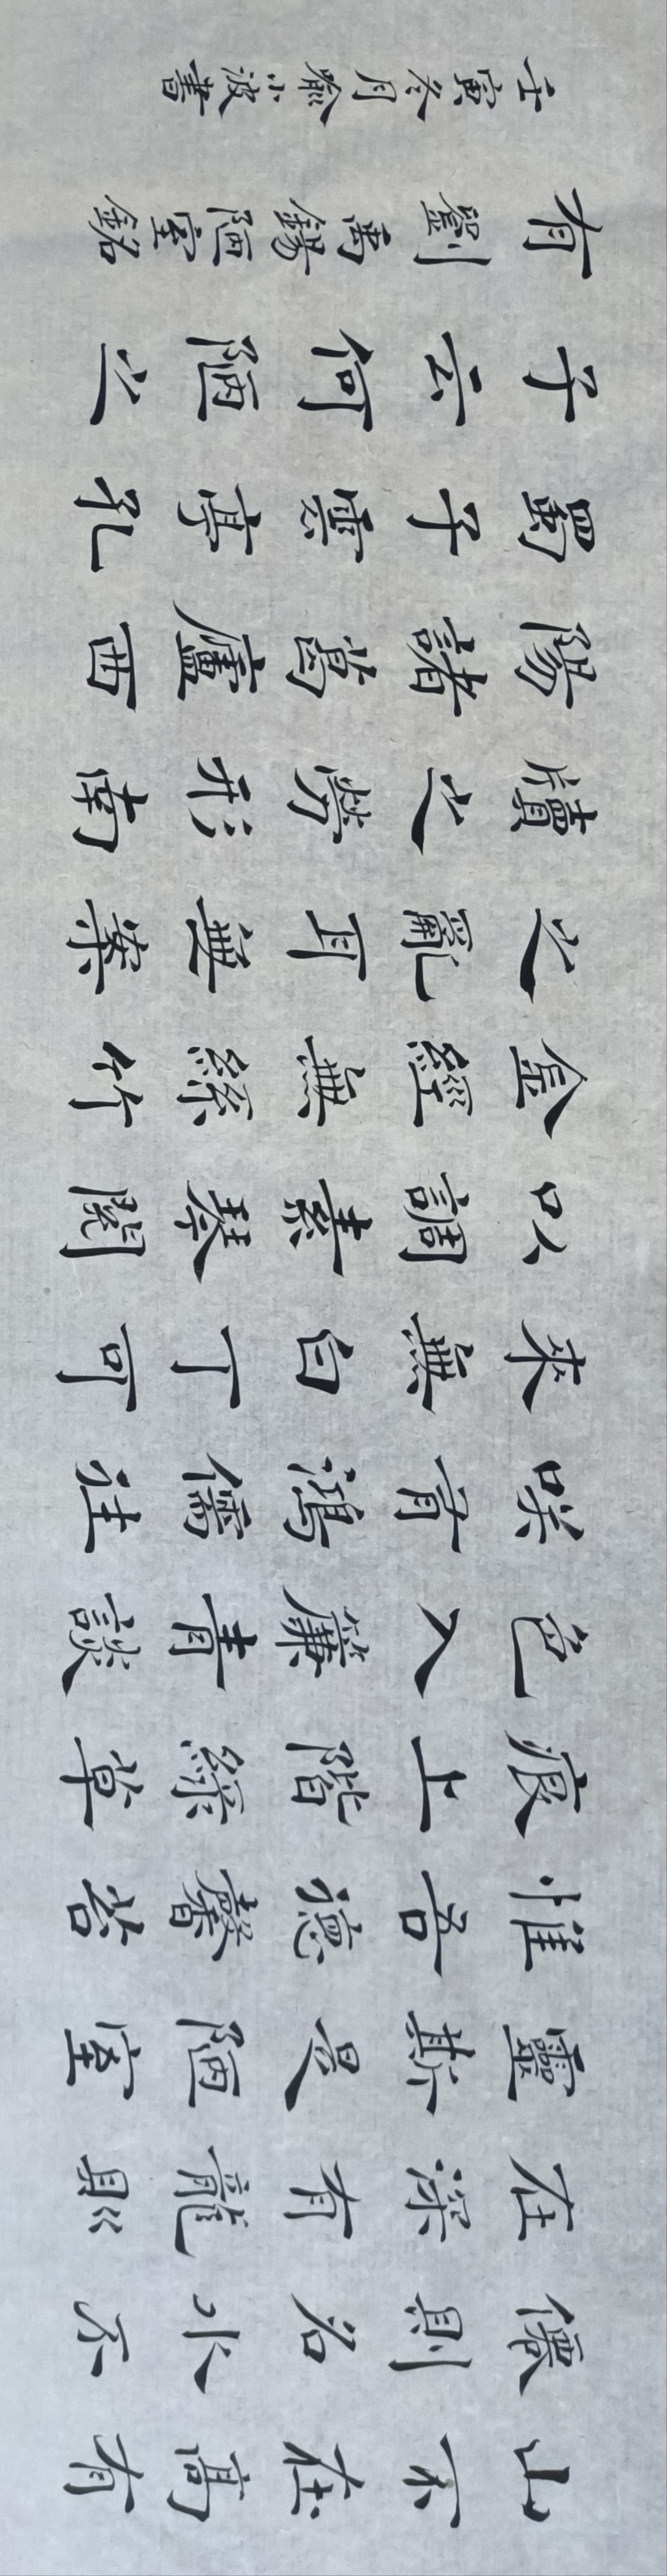 山不在高有
僊則名水不
在深有龍則
靈斯是陋室
惟吾德馨苔
痕上階綠草
色入簾青談
咲有鴻儒往
來無白丁可
以調素琴閱
金經無絲竹
之亂耳無案
牘之勞形南
陽諸葛廬西
蜀子雲亭孔
子云何陋之
有 劉禹錫陋室銘
壬寅冬月喻小波書